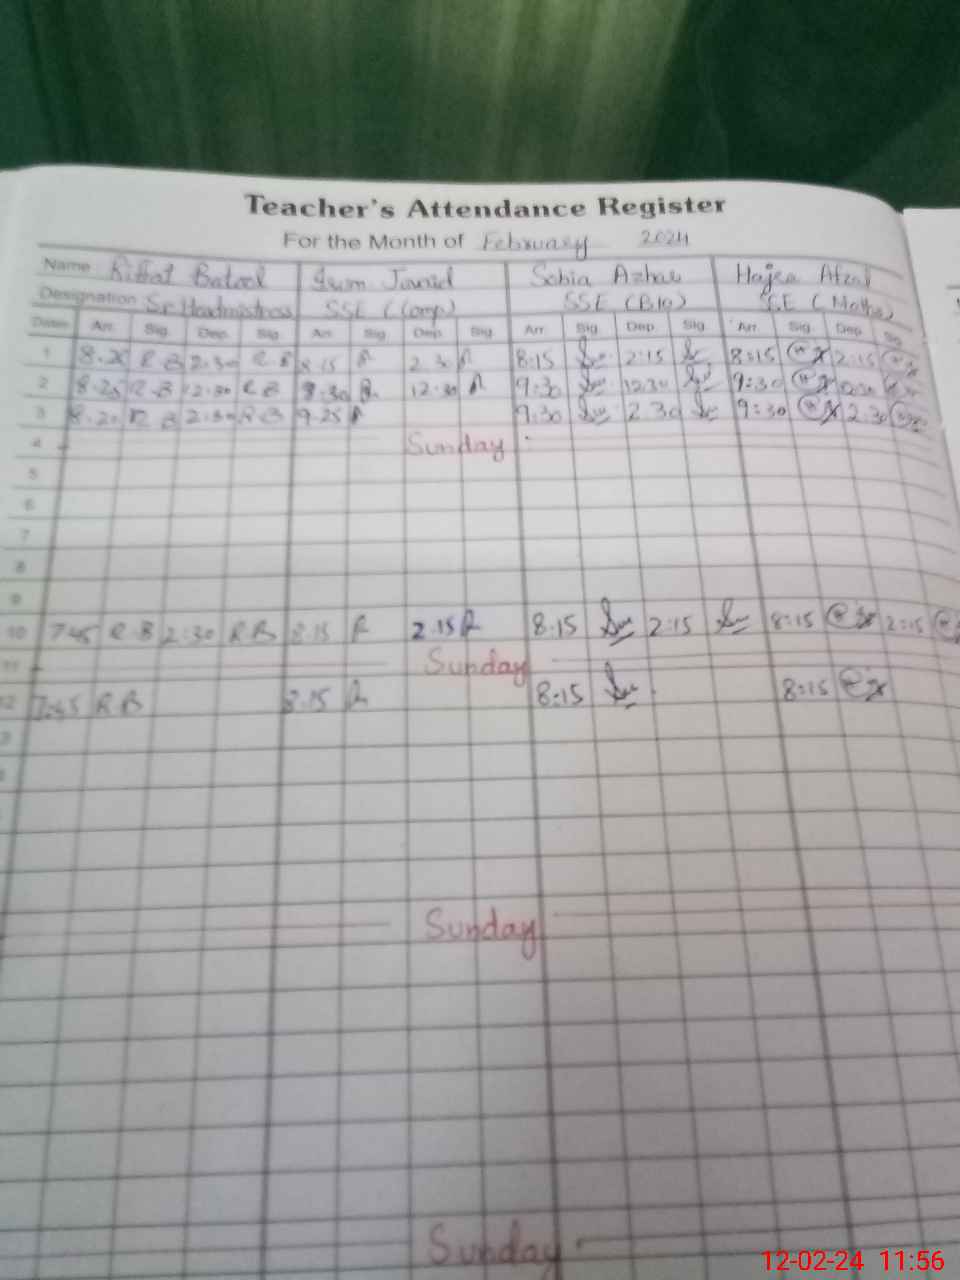 Teacher's Attendance Register
For the Month of February 2024
Name Riffat Batool Irum Junid Sobia Azhar Hajra Afzal
Designation Sr Headmistress SSE (Comp) SSE (Bio) SSE (Maths)
Dates Arr. Sig. Dep. Sig. Arr. Sig. Dep. Sig. Arr. Sig. Dep. Sig. Arr. Sig. Dep. Sig.
1 8.20 R.B 2.30 R.B 8.15 2.30 8:15 2:15 8:15 2:15
2 8.25 R.B 12.30 R B 12.30 9:30 12.30 9:30
3 8.20 R B 2.30 R B 9.25 9:30 2.30 9:30 2.30
4 Sunday
5
6
7
8
9
10 7.45 R.B 2:30 R B 8.15 2.15 8:15 2:15 8:15 2:15
11 Sunday
12 7.45 R.B 8.15 8:15 8:15
Sunday
Sunday
12-02-24 11:56